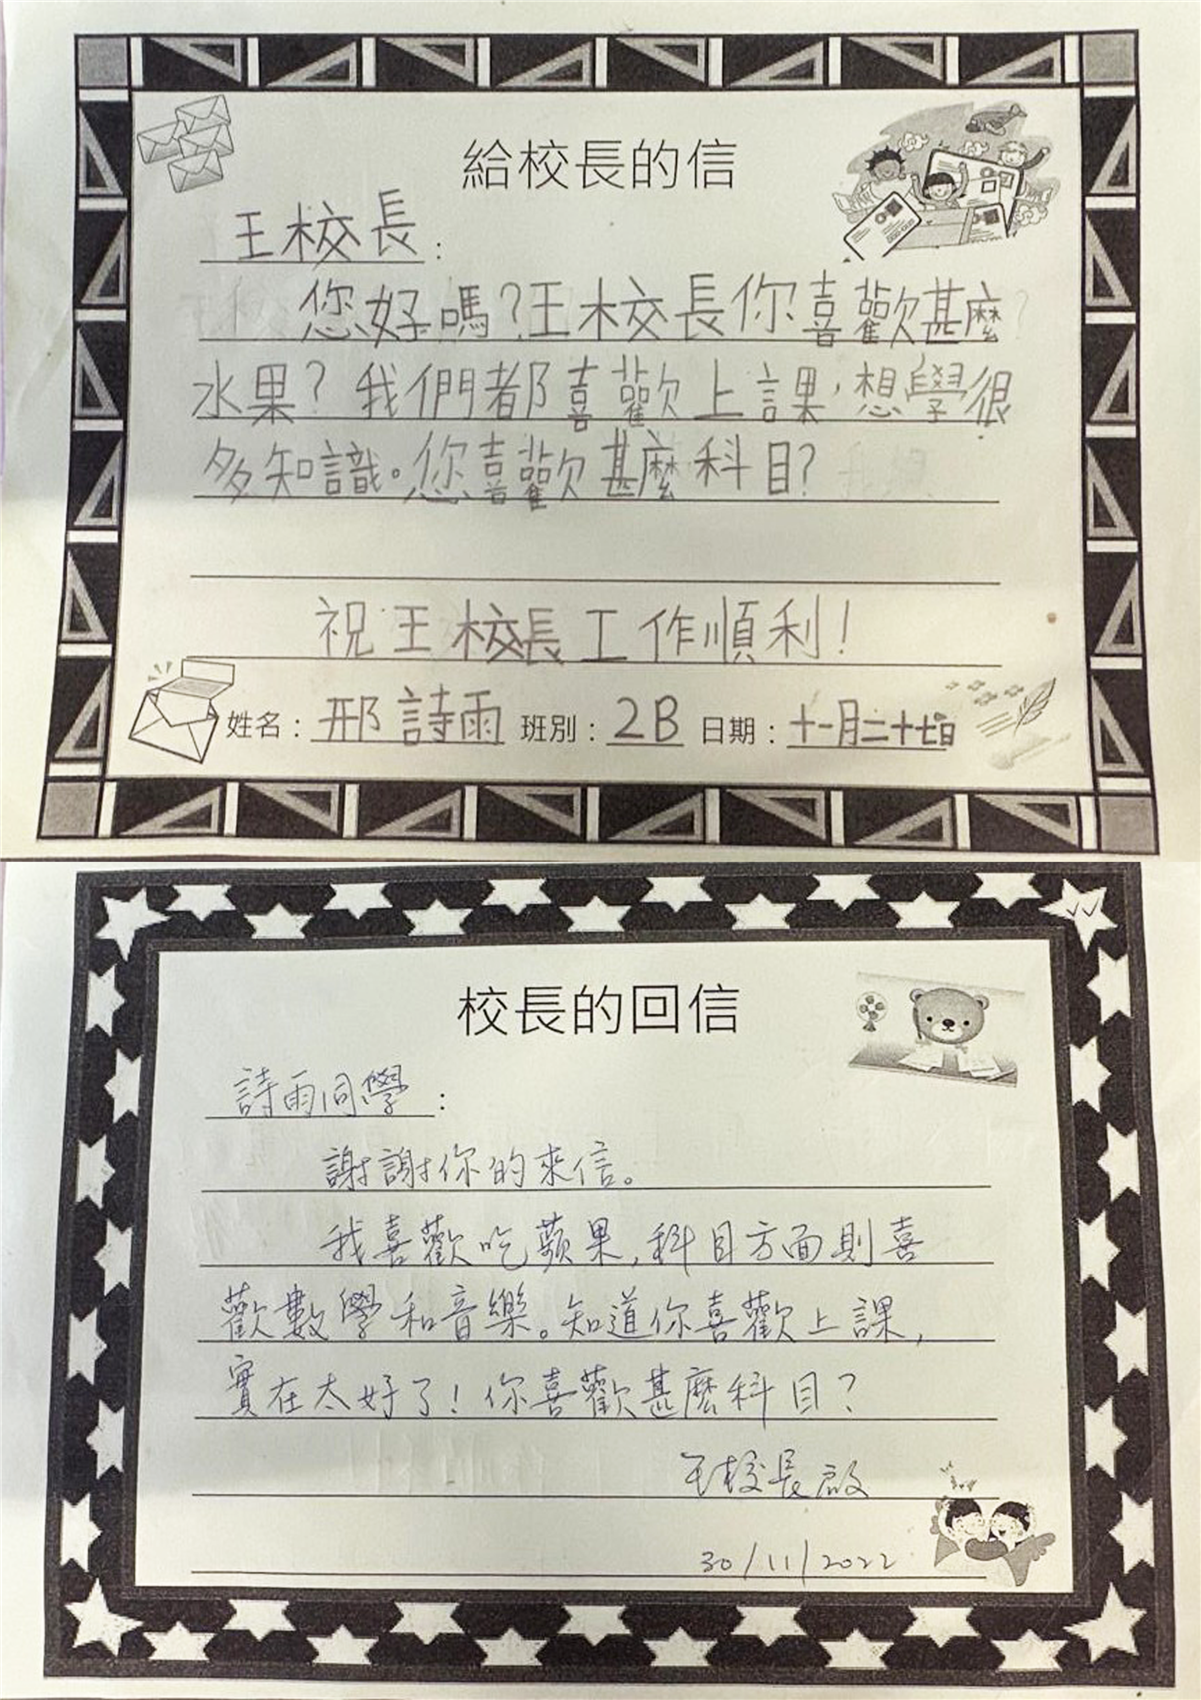 給校長的信
王校長：
您好嗎？王校長你喜歡甚麼
水果？我們都喜歡上課，想學很
多知識。您喜歡甚麼科目？
祝王校長工作順利！
姓名：邢詩雨 班別：2B 日期：十一月二十七日
校長的回信
詩雨同學：
謝謝你的來信。
我喜歡吃蘋果，科目方面則喜
歡數學和音樂。知道你喜歡上課，
實在太好了！你喜歡甚麼科目？
王校長啟
30/11/2022